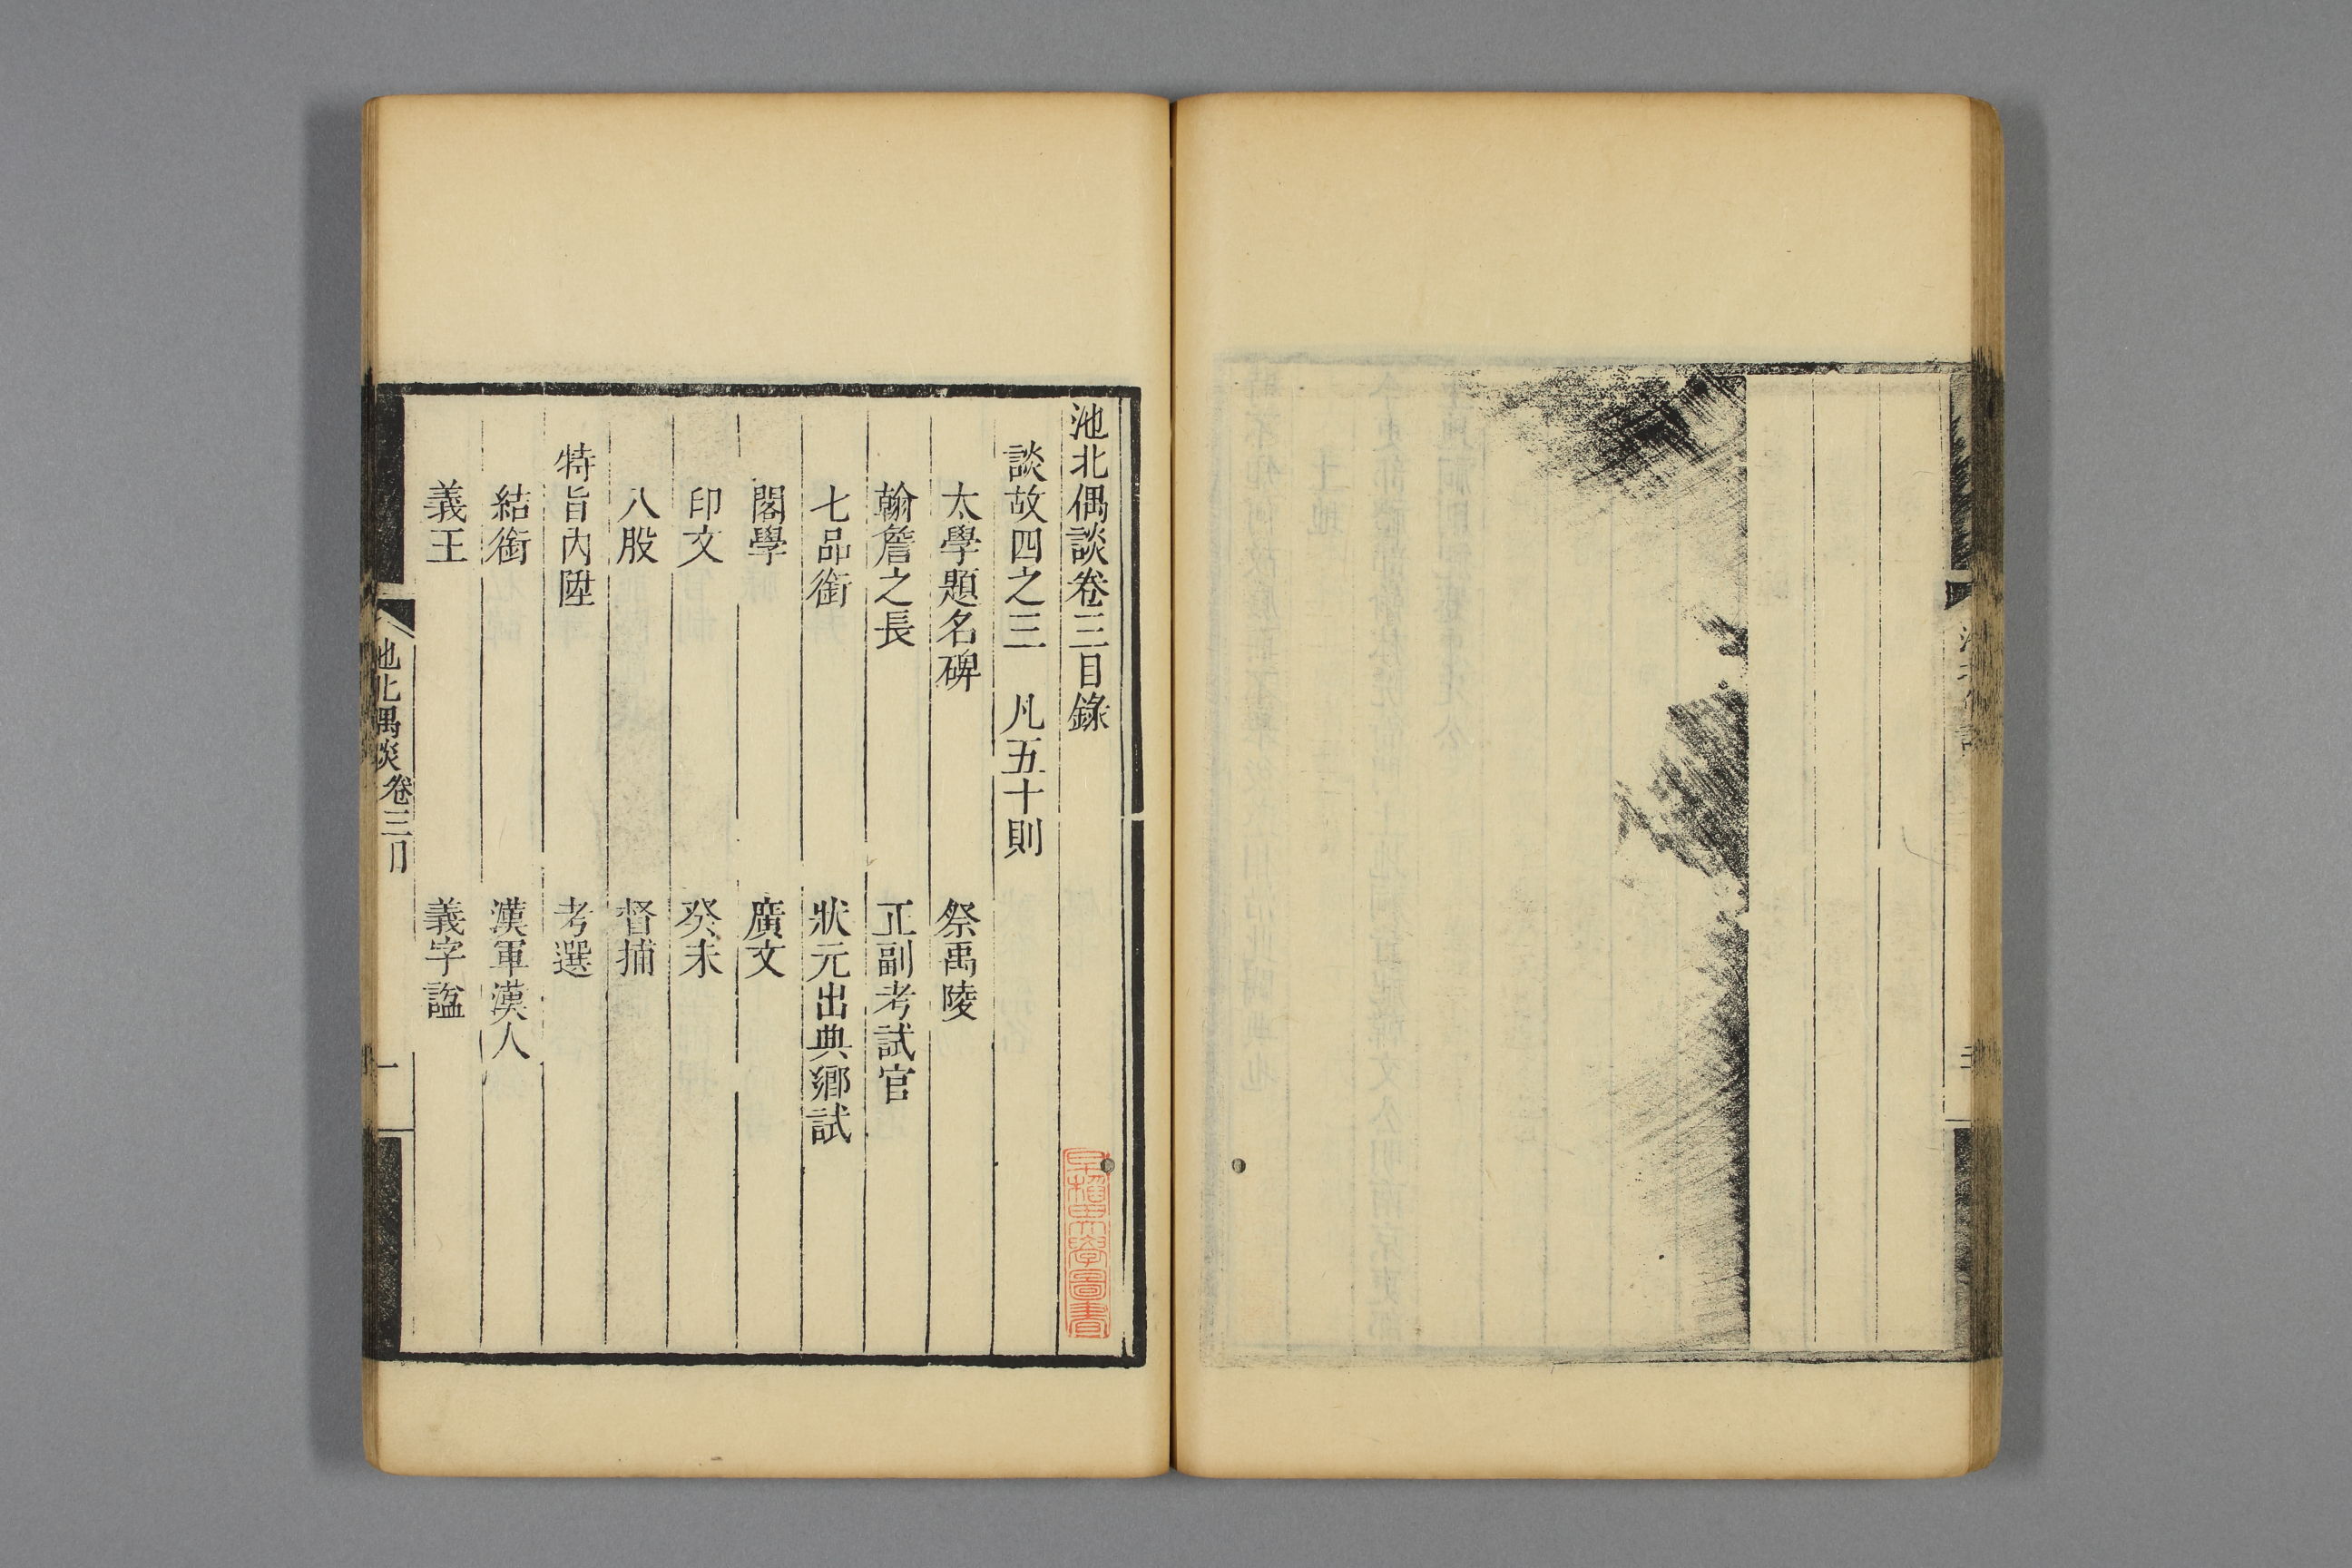 池北偶談卷三目錄
談故四之三　凡五十則
太學題名碑　祭禹陵
翰詹之長　正副考試官
七品銜　狀元出典鄉試
閣學　廣文
印文　癸未
八股　督捕
特旨內陞　考選
結銜　漢軍漢人
義王　義字諡
池北偶談　卷三目　一
早稻田大學圖書